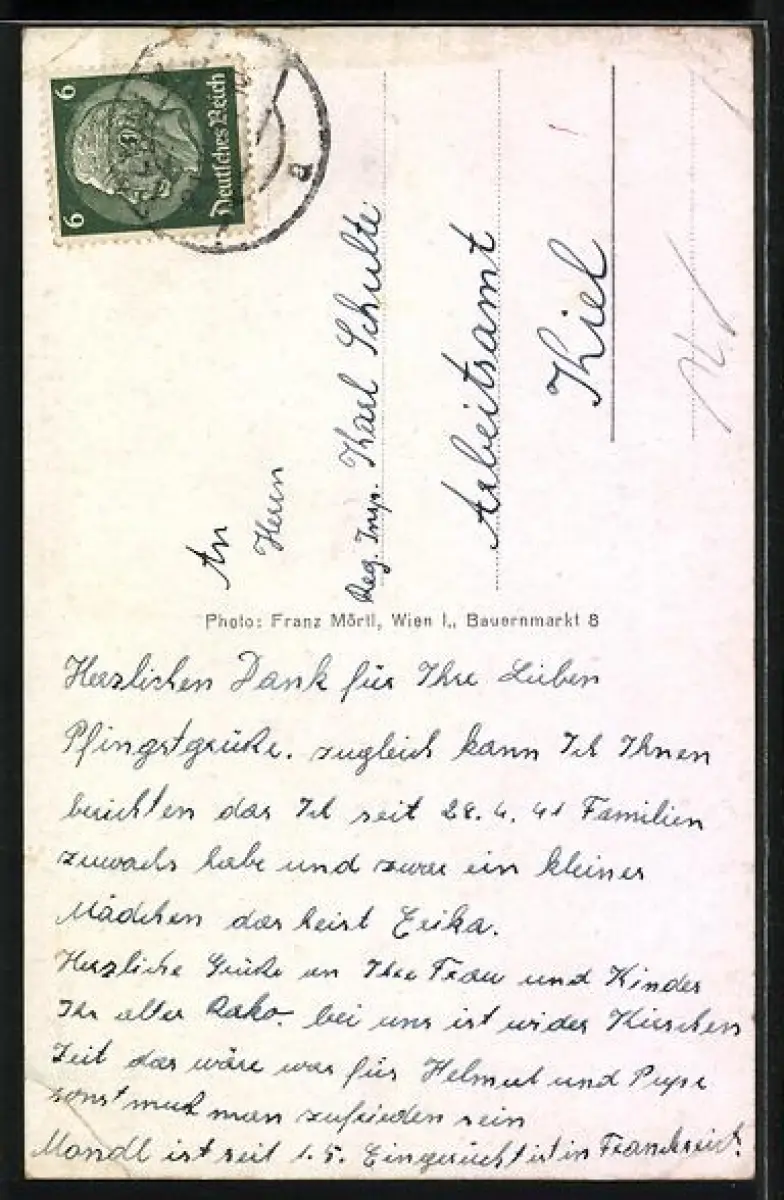 6 6
Deutsches Reich
a
An
Herrn
Reg. Insp. Karl Schulte
Arbeitsamt
Kiel
Photo: Franz Mörtl, Wien I., Bauernmarkt 8
Herzlichen Dank für Ihre Lieben
Pfingstgrüße. zugleich kann Ich Ihnen
berichten das Ich seit 28. 4. 41 Familien
zuwachs habe und zwar ein kleines
Mädchen das heist Erika.
Herzliche Grüße an Ihre Frau und Kinder
Ihr alter Rako. bei uns ist wider Kirschen
Zeit das wäre was für Helmut und Pupi
sonst muß man zufrieden sein
Mandl ist seit 1. 5. Eingerückt ist in Frankreich.